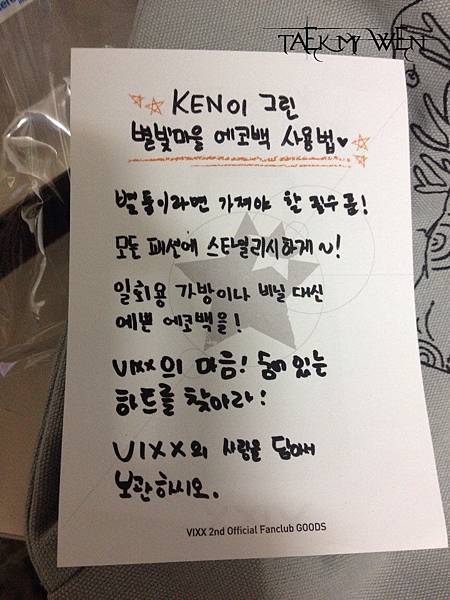 TAEK MY WEN
KEN이 그린
별빛마을 에코백 사용법♥
별들이라면 가져야 할 필수품!
모든 패션에 스타일리시하게~!
일회용 가방이나 비닐 대신
예쁜 에코백을!
VIXX의 마음! 숨어 있는
하트를 찾아라!
VIXX의 사랑을 담아서
보관하시오.
VIXX 2nd Official Fanclub GOODS